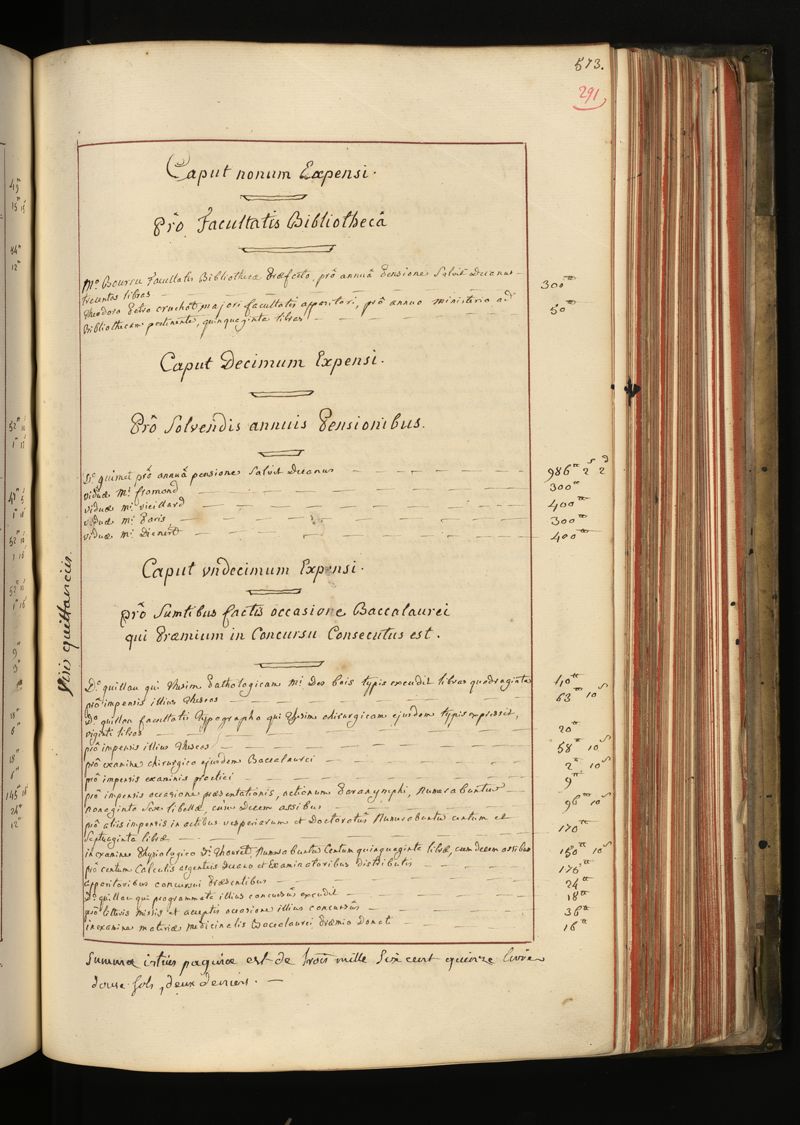 573.
291
Caput nonum Expensi.
prô Facultatis Bibliothecâ
Mo. Bourru Facultatis Bibliothecæ Præfecto, prô annuâ Pensione Salvit Decanus
trecentas libras 300tt
Theodoro Petro cruchot majori facultatis apparitori, prô annuo ministerio ad
Bibliothecam pertinente, quinquaginta libras 50tt
Caput Decimum Expensi.
Prô Solvendis annuis Pensionibus.
Do. guimet prô annuâ pensione Salvit Decanus 986tt 2s 2d
viduæ Mi. fromond 300tt
viduæ Mi. vieillard 400tt
viduæ Mi. Paris 300tt
viduæ Mi. Dienert 400tt
Caput vndecimum Expensi.
prô Sumtibus factis occasione Baccalaurei
qui Præmium in Concursu Consecutus est.
Visis quittanciis.
Do. quillau qui thesim Pathologicam Mi. Des bois typis excudit libras quadraginta 40tt
prô impensis illius Theseos 63 10s
Do. quillau facultatis typographo qui thesim chirurgicam ejusdem typis expressit,
viginti libras 20tt
prô impensis illius Theseos 58tt 10s
prô examine chirurgico ejusdem Baccalaurei 2tt 10s
prô impensis examinis practici 9tt
prô impensis occasione præsentationis, actionum Paranymphi, Numerabuntur
nonaginta Sex libellæ, cum decem assibus 96tt 10s
prô aliis impensis in actibus vesperiarum et Doctoratûs Numerabuntur centum et
Septuaginta libræ 170tt
in examine Physiologico Di. Thouret, Numerabuntur Centum quinquaginta libræ, cum decem assibus 150tt 10s
prô centum Calculis argenteis Decano et Examinatoribus distributis 176tt
apparitoribus concursui Præsentibus 24tt
Do. quillau qui programmata illius concursûs excudit 18tt
prô litteris missis et acceptis occasione illius concursûs 36tt
in examine materiæ medicinalis Baccalaurei Præmio Donat 16tt
Summa istius paginæ est de trois mille Six cent quinze livres
douze Sols, deux deniers.